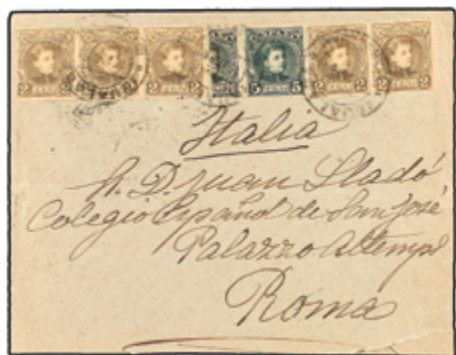 2 2 2 2 5 5 2 2 2
Italia
S. D. Juan Lladó
Colegio Español de San José
Palazzo Altemps
Roma